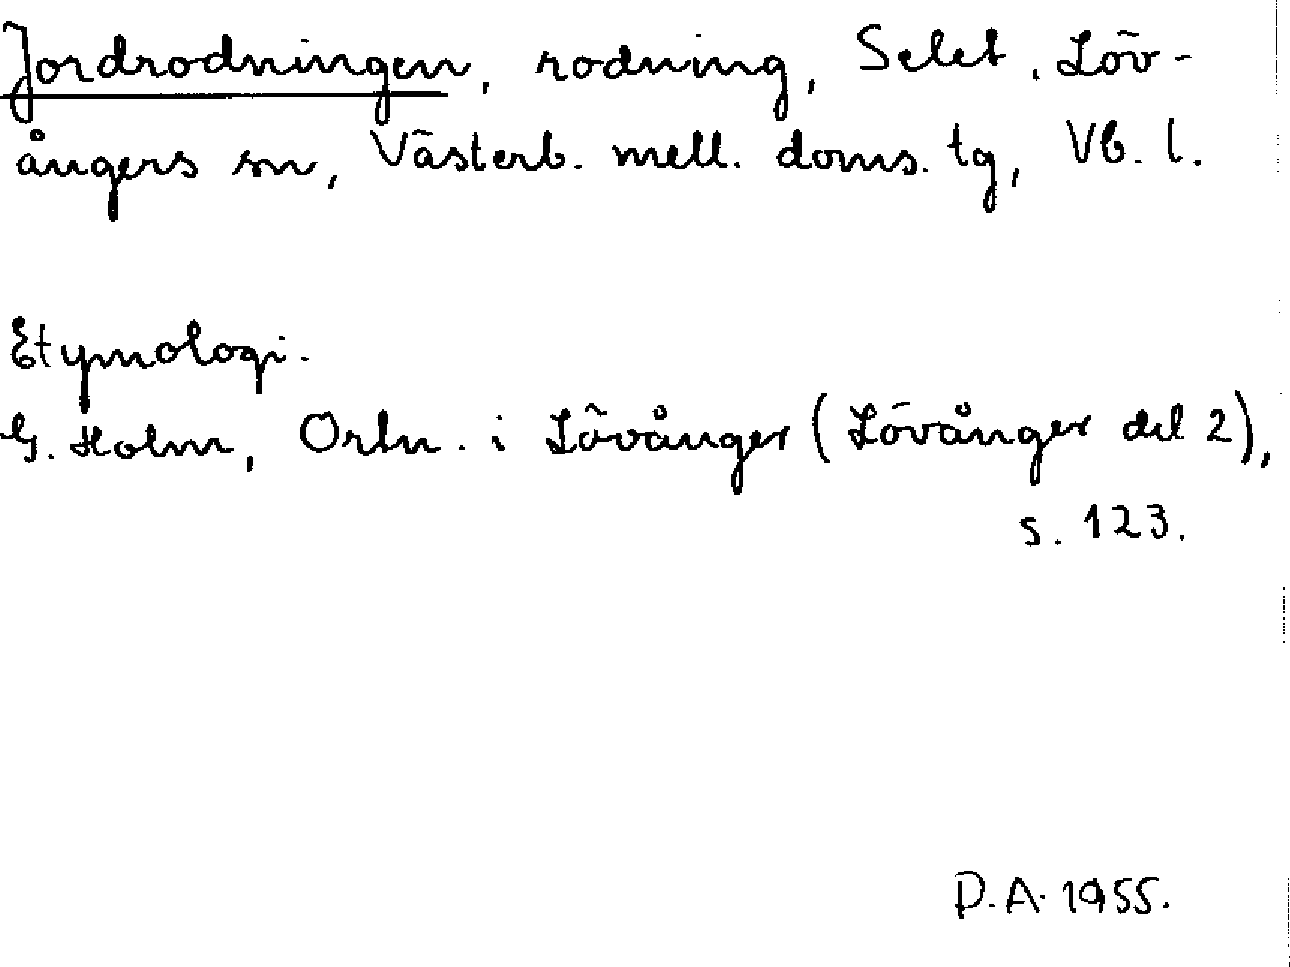 Jordrodningen, rodning, Selet, Löv-
ångers sn, Västerb. mell. doms. tg, Vb. l.
Etymologi.
G. Holm, Ortn. i Lövånger (Lövånger del 2),
s. 123.
P.A. 1955.